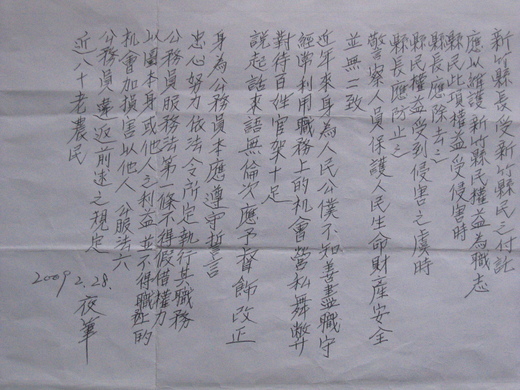 新竹縣長受新竹縣民之付託
應以維護新竹縣民權益為職志
縣民此項權益受侵害時
縣長應除去之
縣民權益受到侵害之虞時
縣長應防止之
警察人員保護人民生命財產安全
並無二致
近年來身為人民公僕不知善盡職守
經常利用職務上的机會營私舞弊
對待百姓官架十足
說起話來語無倫次應予督飭改正
身為公務員本應遵守誓言
忠心努力依法令所定執行其職務
公務員服務法第一條不得假借權力
以圖本身或他人之利益並不得職務的
機會加損害以他人 公服法六
公務員違返前述之規定
近八十老農民
2009.2.28.夜筆